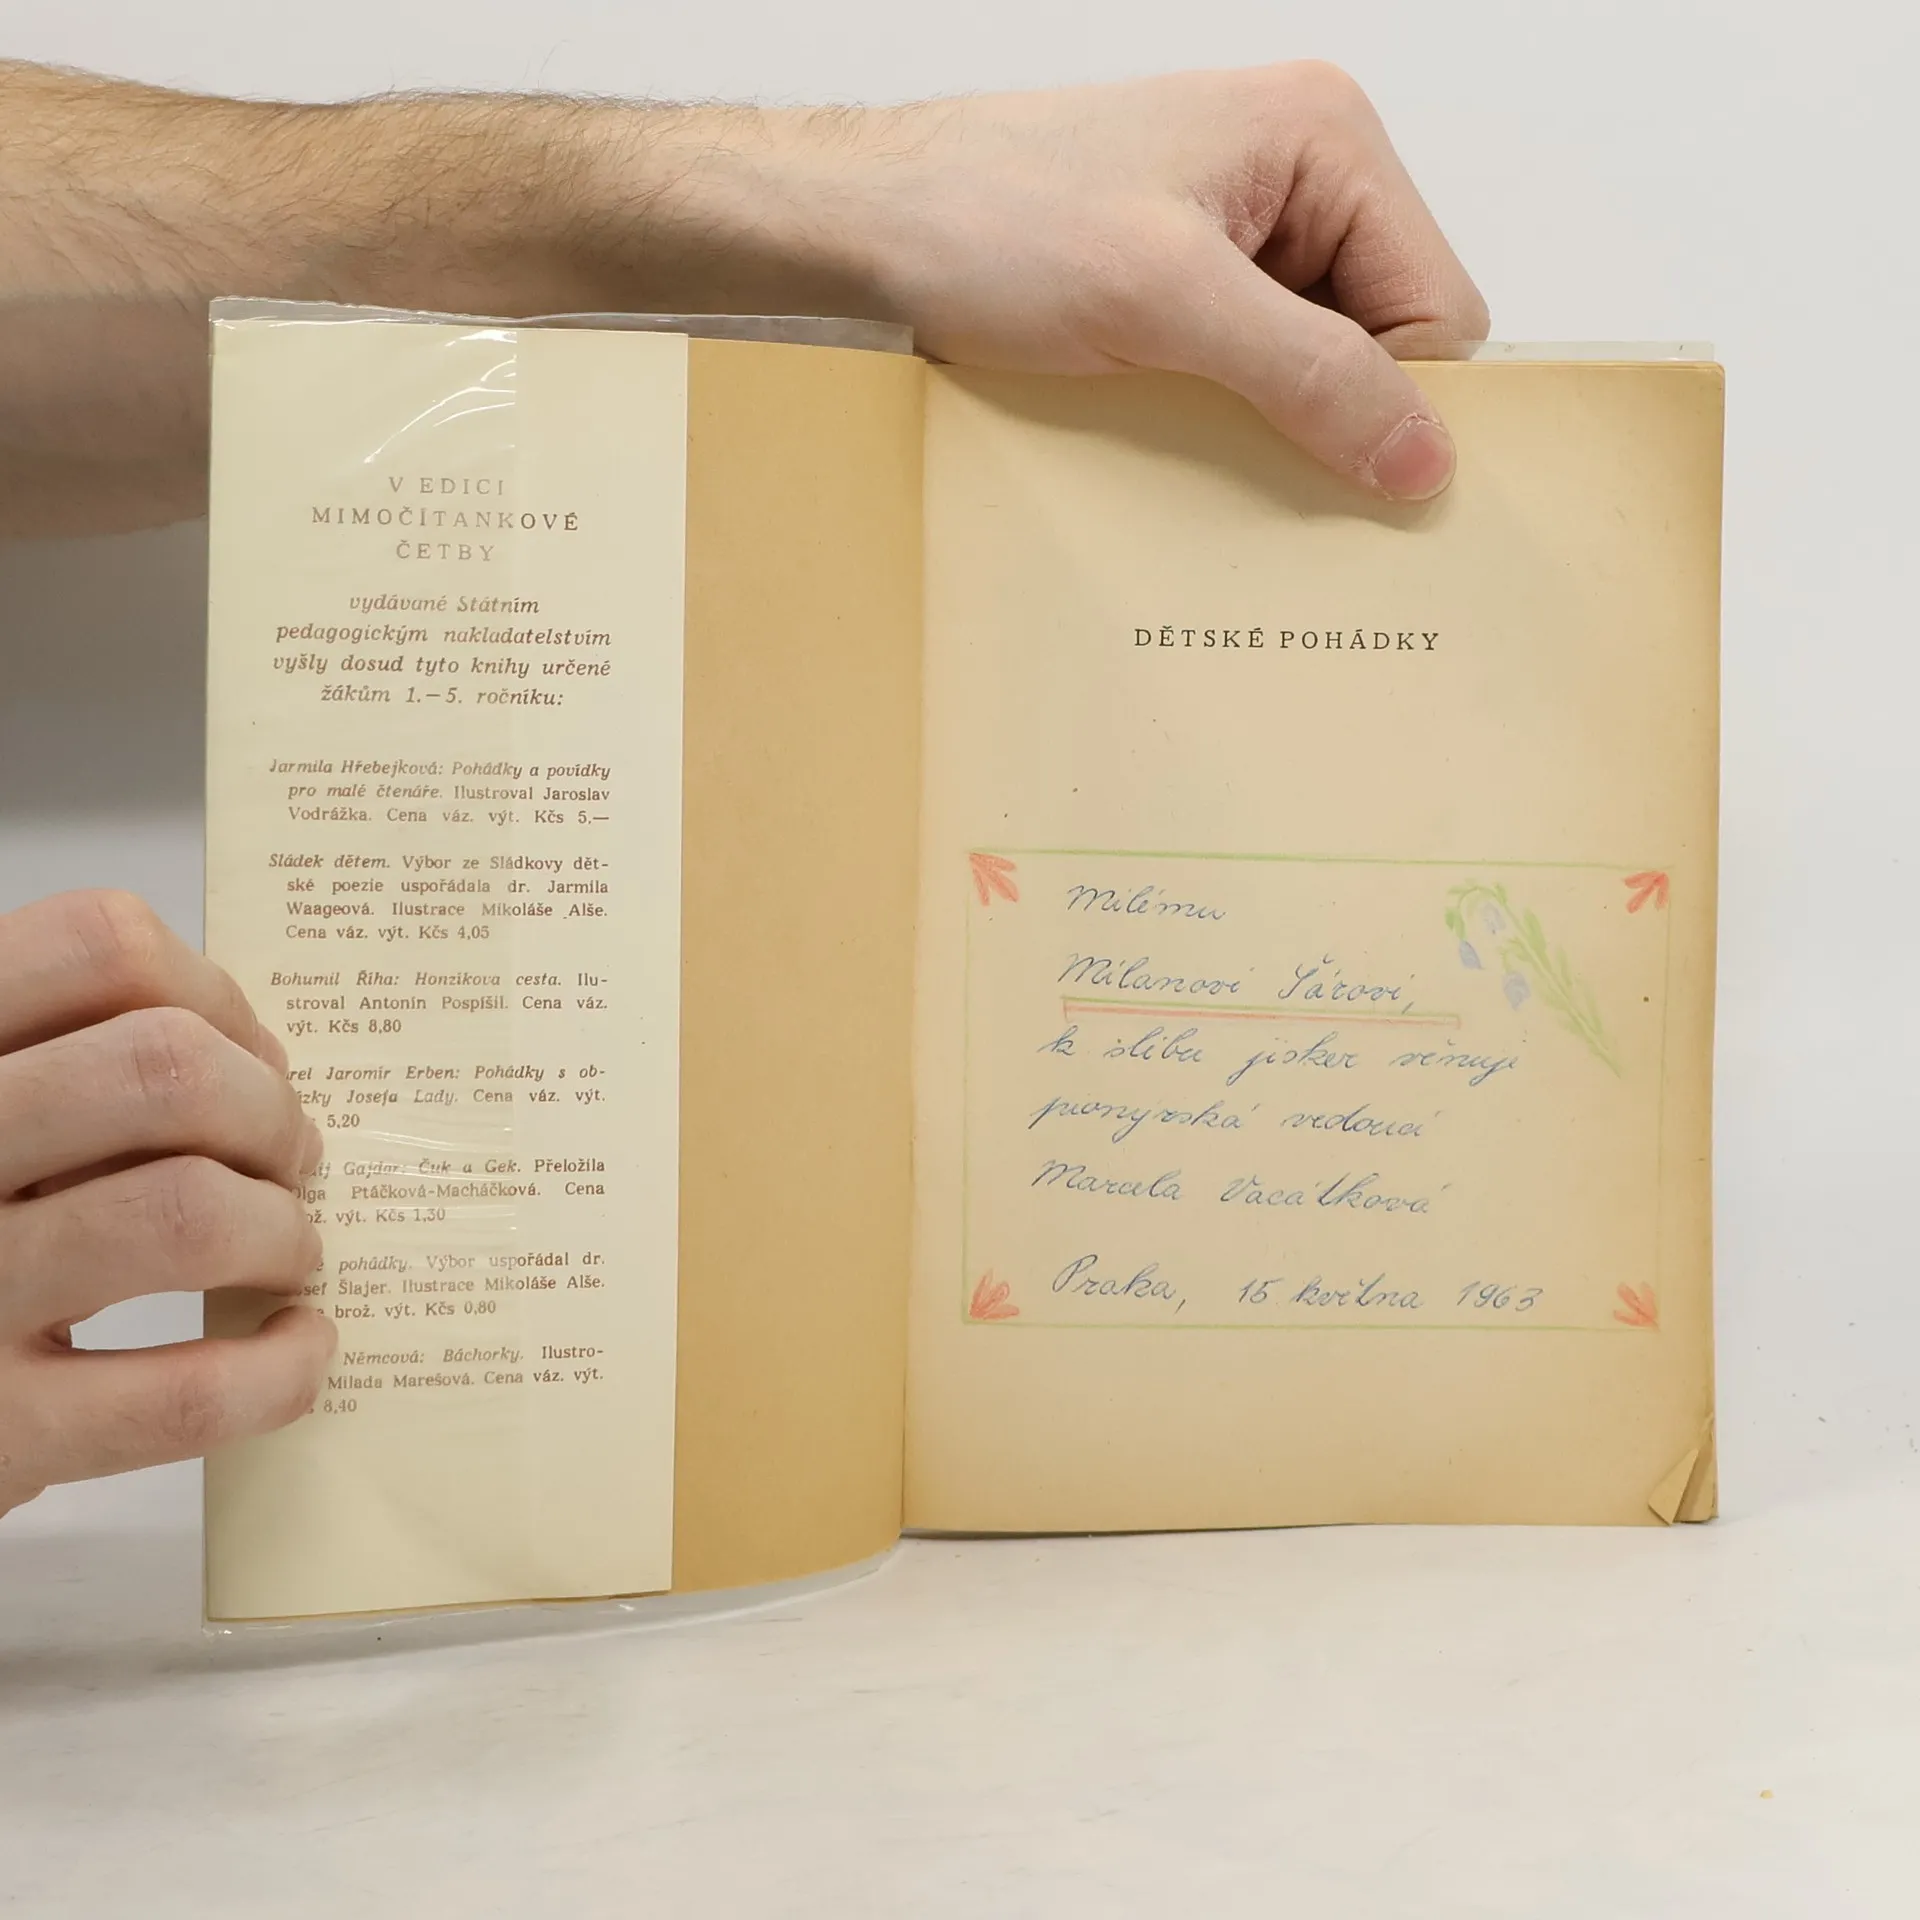 V EDICI
MIMOČÍTANKOVÉ
ČETBY
vydávané Státním
pedagogickým nakladatelstvím
vyšly dosud tyto knihy určené
žákům 1.–5. ročníku:
Jarmila Hřebejková: Pohádky a povídky
pro malé čtenáře. Ilustroval Jaroslav
Vodrážka. Cena váz. výt. Kčs 5,—
Sládek dětem. Výbor ze Sládkovy dět-
ské poezie uspořádala dr. Jarmila
Waageová. Ilustrace Mikoláše Alše.
Cena váz. výt. Kčs 4,05
Bohumil Říha: Honzíkova cesta. Ilu-
stroval Antonín Pospíšil. Cena váz.
výt. Kčs 8,80
Jaromír Erben: Pohádky s ob-
Josefa Lady. Cena váz. výt.
5,20
Gajdar: Čuk a Gek. Přeložila
Olga Ptáčková-Macháčková. Cena
výt. Kčs 1,30
pohádky. Výbor uspořádal dr.
Šlajer. Ilustrace Mikoláše Alše.
brož. výt. Kčs 0,80
Němcová: Báchorky. Ilustro-
Milada Marešová. Cena váz. výt.
8,40
DĚTSKÉ POHÁDKY
Milému
Milanovi Šárovi,
k slibu jisker věnuje
pionýrská vedoucí
Marcela
Praha, 15 května 1963